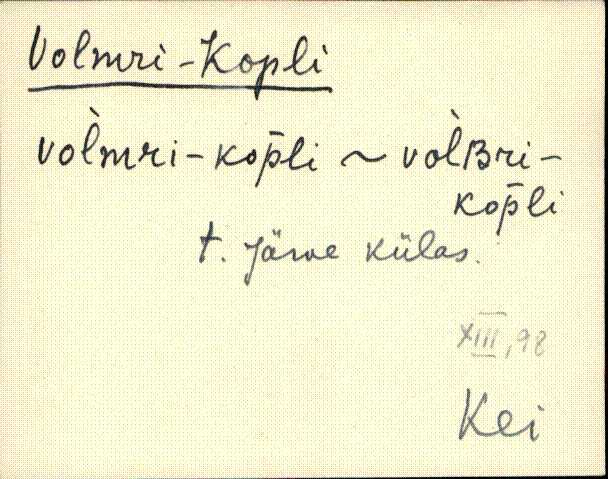 Volmri-Kopli
vòlmri-kop̄li ~ vòlBri-
kop̄li
t. Järve külas.
XIII, 98
Kei